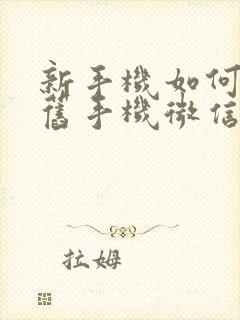 新手機如何
舊手機微信
拉姆